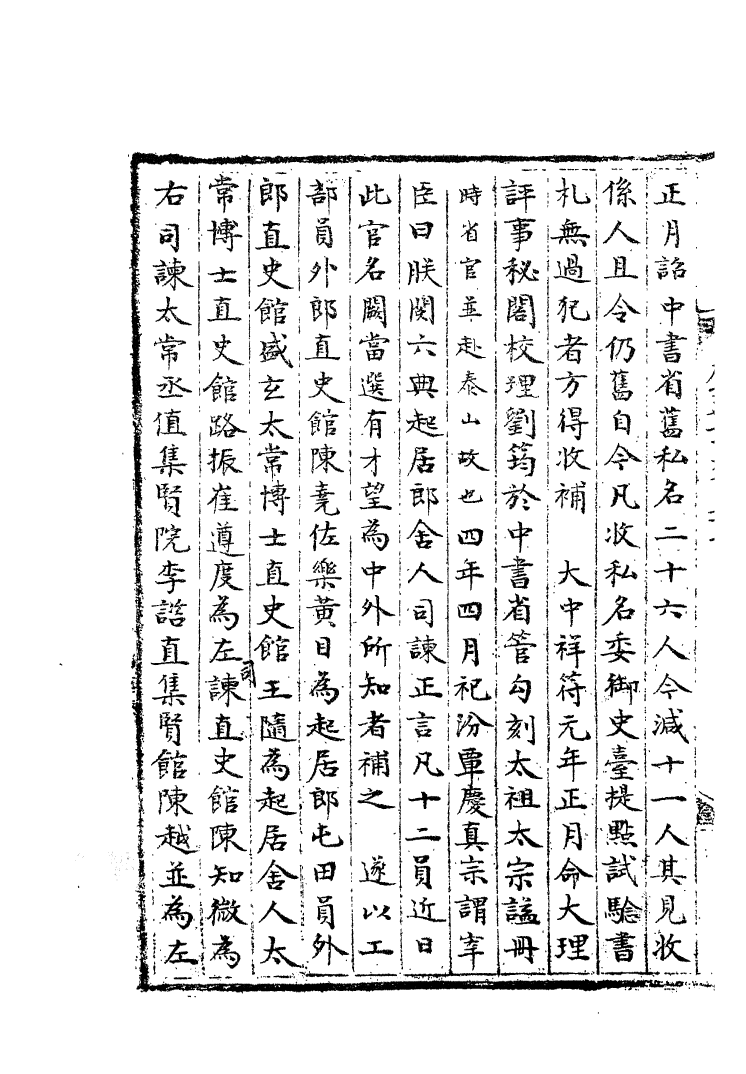 正月詔中書省舊私名二十六人今減十一人其見收
係人且令仍舊自今凡收私名委御史臺提點試驗書
札無過犯者方得收補　大中祥符元年正月命大理
評事秘閣校理劉筠於中書省管勾刻太祖太宗謚冊
時省官並赴泰山故也四年四月祀汾覃慶真宗謂宰
臣曰朕閱六典起居郎舍人司諫正言凡十二員近日
此官名闕當選有才望為中外所知者補之　遂以工
部員外郎直史館陳堯佐樂黃目為起居郎屯田員外
郎直史館盛玄太常博士直史館王隨為起居舍人太
常博士直史館路振崔遵度為左司諫直史館陳知微為
右司諫太常丞值集賢院李諮直集賢館陳越並為左